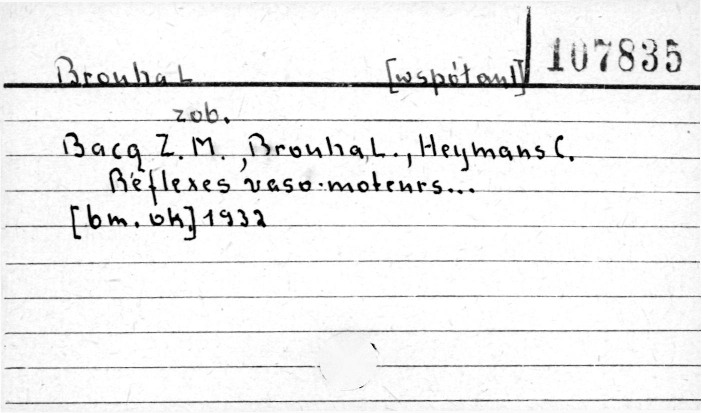 Brouha L [współaut] 107835
zob.
Bacq Z. M., Brouha, L., Heymans C.
Réflexes vaso-moteurs...
[bm. ok.] 1932